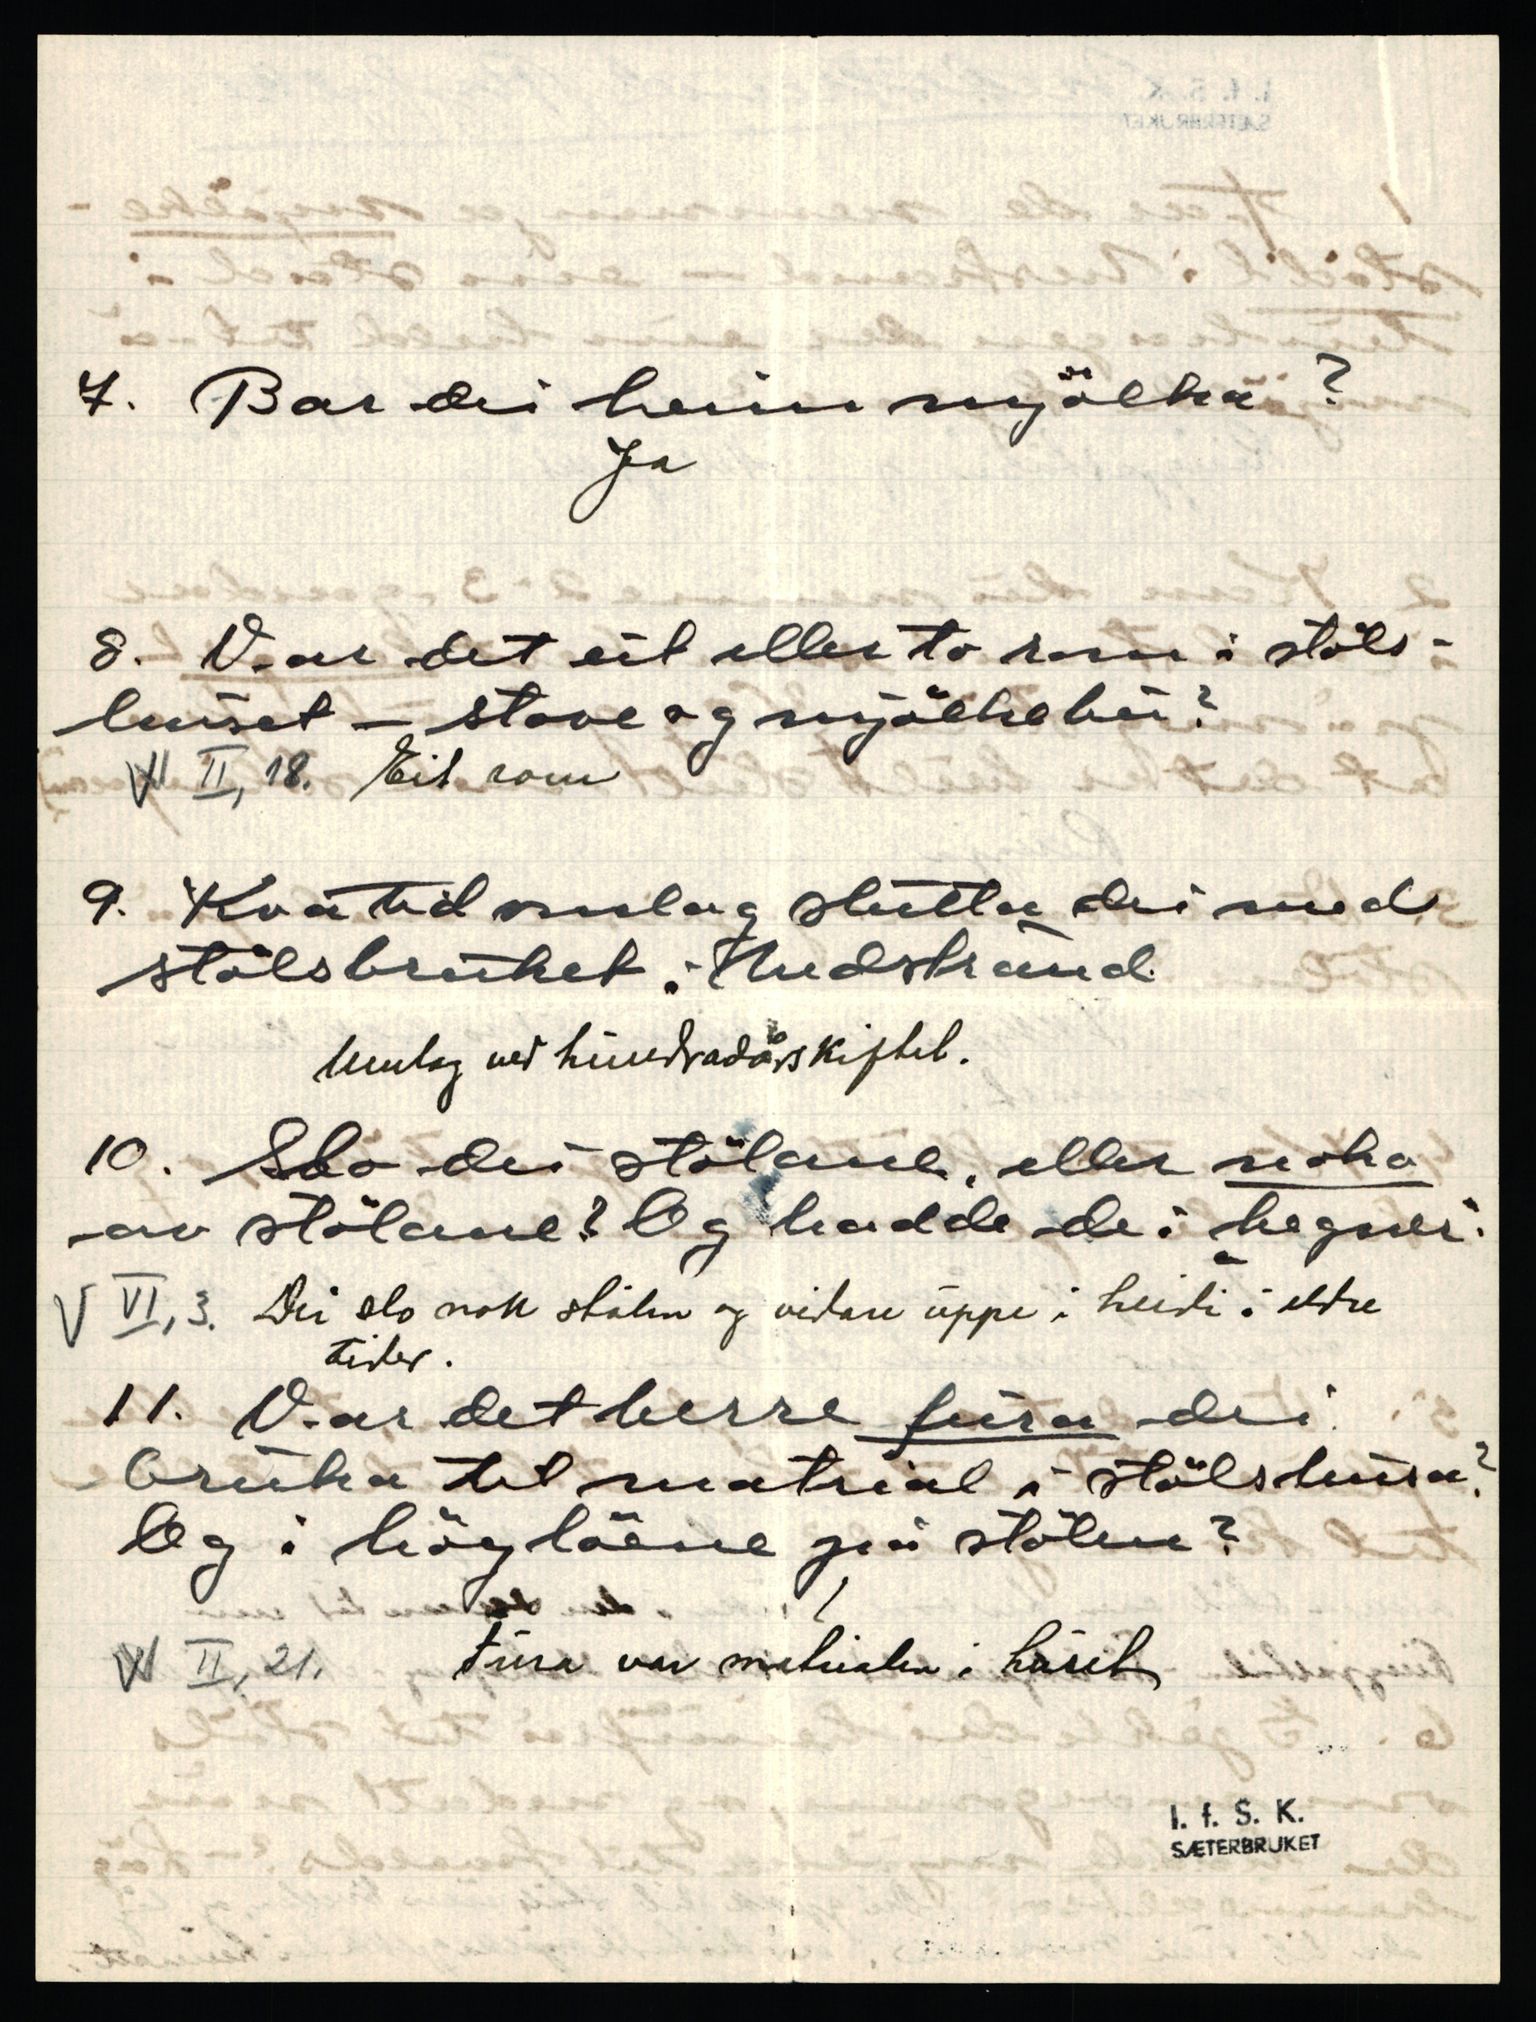 7. Bar dei heim mjölka?
Ja
8. Var det eit eller to rom i stöls-
huset - stove og mjölkebu?
V II, 18. Eit rom
9. Kva tid omlag slutta dei med
stölsbruket i Nedstrand
Umlag ved hundradårskiftet.
10. Slo dei stölane, eller noko
av stölane? Og hadde dei hegner i
V VI, 3. Dei slo nok stölen og vidare uppe i heidi i eldre
tider.
11. Var det berre fura dei
bruka til matrial i stölshusa?
Og i höylöene på stölen?
V II, 21. Fura var materialen i huset
I. f. S. K.
SÆTERBRUKET